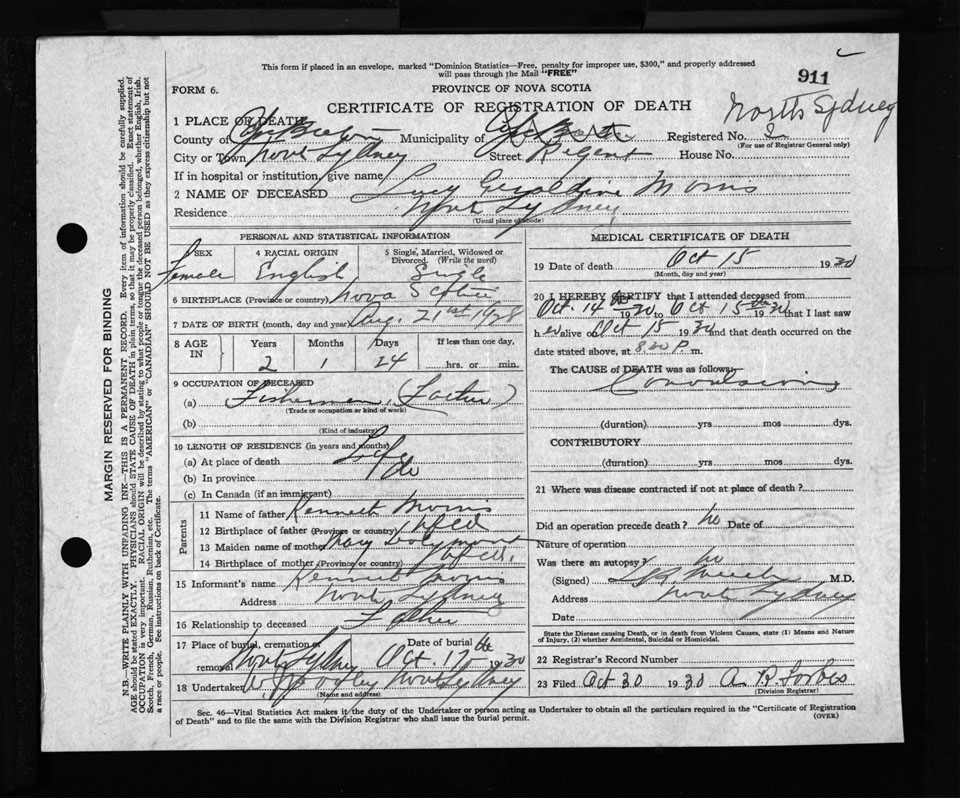 This form if placed in an envelope, marked "Dominion Statistics—Free, penalty for improper use, $300," and properly addressed
will pass through the Mail "FREE"
911
FORM 6.
PROVINCE OF NOVA SCOTIA
CERTIFICATE OF REGISTRATION OF DEATH
North Sydney
1 PLACE OF DEATH
County of Cape Breton Municipality of Cape Breton Registered No. 2
(For use of Registrar General only)
City or Town North Sydney Street Regent House No.
If in hospital or institution, give name
2 NAME OF DECEASED Lucy Geraldine Morris
Residence North Sydney
(Usual place of abode)
PERSONAL AND STATISTICAL INFORMATION
SEX
Female
4 RACIAL ORIGIN
English
5 Single, Married, Widowed or
Divorced. (Write the word)
Single
6 BIRTHPLACE (Province or country) Nova Scotia
7 DATE OF BIRTH (month, day and year) Aug. 21st 1928
8 AGE
IN
Years
2
Months
1
Days
24
If less than one day,
hrs. or min.
9 OCCUPATION OF DECEASED
(a) Fisherman (Father)
(Trade or occupation or kind of work)
(b)
(Kind of industry)
10 LENGTH OF RESIDENCE (in years and months)
(a) At place of death Life
(b) In province do
(c) In Canada (if an immigrant)
Parents
11 Name of father Kenneth Morris
12 Birthplace of father (Province or country) Nfld
13 Maiden name of mother Mary
14 Birthplace of mother (Province or country)
15 Informant's name Kenneth Morris
Address North Sydney
16 Relationship to deceased Father
17 Place of burial, cremation or
removal North Sydney
Date of burial
Oct. 17th 1930
18 Undertaker North Sydney
(Name and address)
MEDICAL CERTIFICATE OF DEATH
19 Date of death Oct 15 1930
(Month, day and year)
20 I HEREBY CERTIFY that I attended deceased from
Oct. 14th 1930 to Oct 15th 1930 that I last saw
her alive on Oct 15 1930 and that death occurred on
date stated above, at 8.30 P. m.
The CAUSE of DEATH was as follows:
Convulsions
(duration) yrs mos dys.
CONTRIBUTORY
(duration) yrs mos dys.
21 Where was disease contracted if not at place of death?
Did an operation precede death? no Date of
Nature of operation
Was there an autopsy? no
(Signed) M.D.
Address North Sydney
Date
State the Disease causing Death, or in death from Violent Causes, state (1) Means and Nature
of Injury, (2) whether Accidental, Suicidal or Homicidal.
22 Registrar's Record Number
23 Filed Oct 30 1930 A. R. Forbes
(Division Registrar)
Sec. 46—Vital Statistics Act makes it the duty of the Undertaker or person acting as Undertaker to obtain all the particulars required in the "Certificate of Registration
of Death" and to file the same with the Division Registrar who shall issue the burial permit.
(OVER)
MARGIN RESERVED FOR BINDING
N.B.—WRITE PLAINLY WITH UNFADING INK—THIS IS A PERMANENT RECORD. Every item of information should be carefully supplied.
AGE should be stated EXACTLY. PHYSICIANS should STATE CAUSE OF DEATH in plain terms, so that it may be properly classified. Exact statement of
OCCUPATION is very important. RACIAL ORIGIN will be described by stating to what people or tongue the deceased person belonged, whether English, Irish,
Scotch, French, German, Russian, Ruthenian, etc. The terms "AMERICAN" or "CANADIAN" SHOULD NOT BE USED as they express citizenship but not
a race or people. See instructions on back of Certificate.